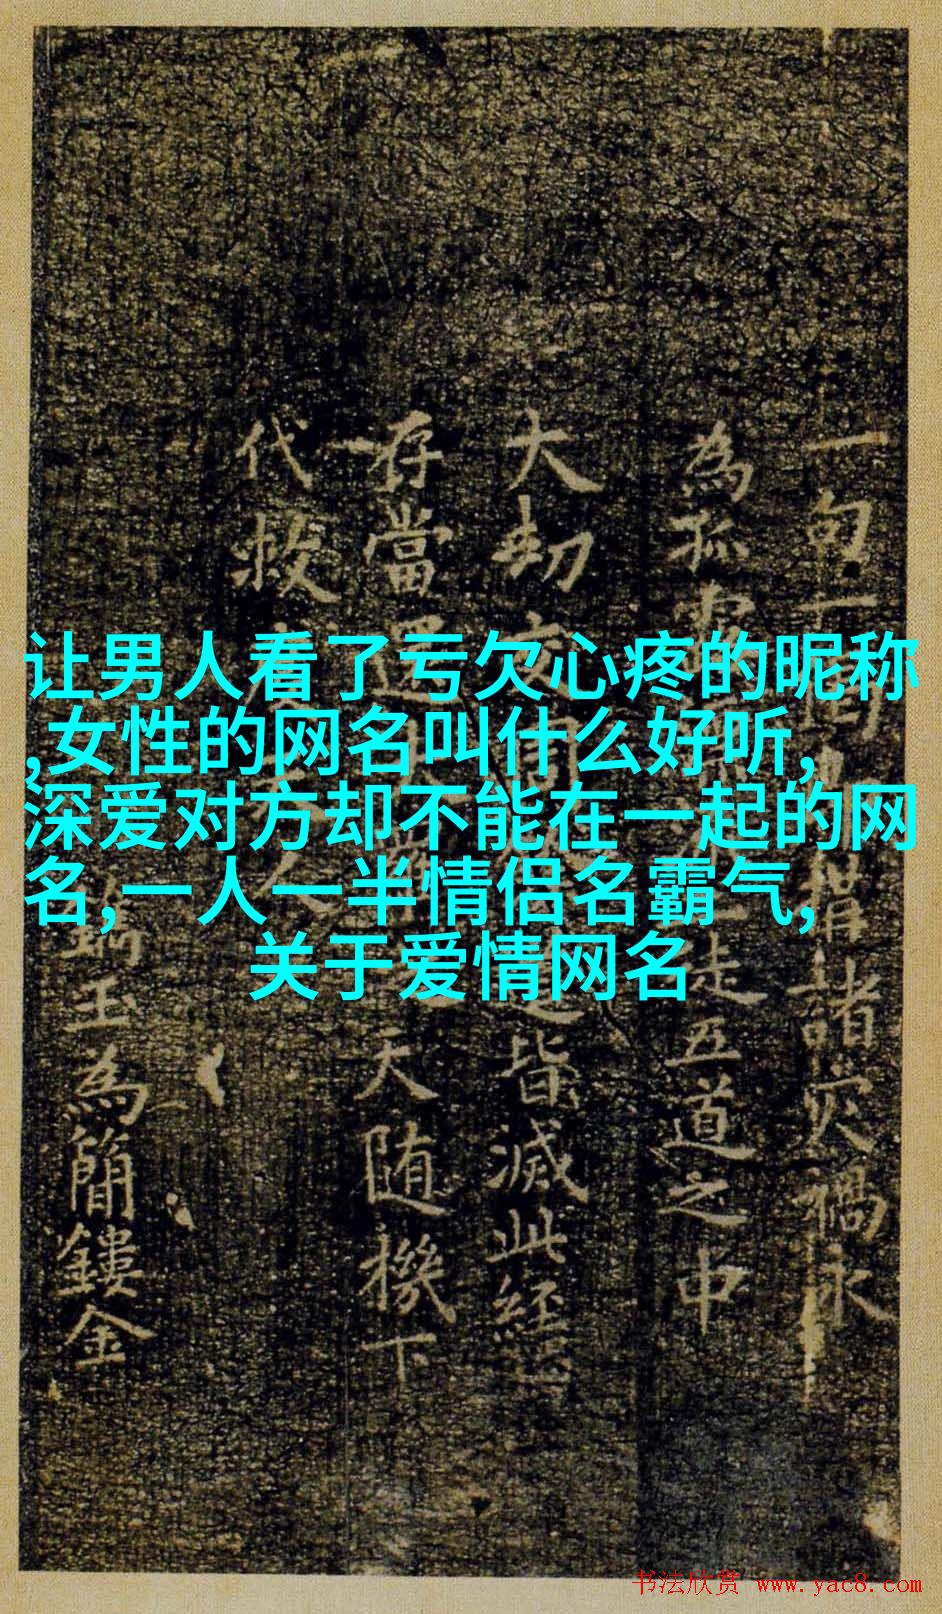 让男人看了亏欠心疼的昵称
,女性的网名叫什么好听,
深爱对方却不能在一起的网
名,一人一半情侣名霸气,
关于爱情网名
一句一
措諸灾禍永
為孤
走五道之中
大劫
皆滅此經
存當還
天随機下
代救
玉為簡鏤金
书法欣赏 www.yac8.com